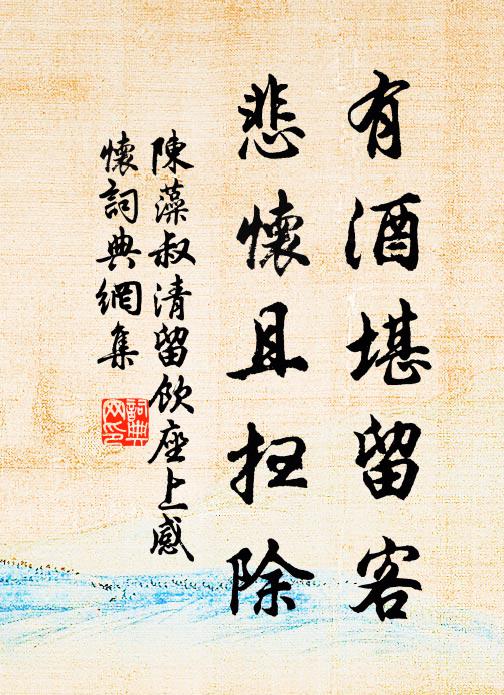 有酒堪留客
悲懷且扫除
陳藻叔清留飲座上感
懷詞典網集
詞典
网印